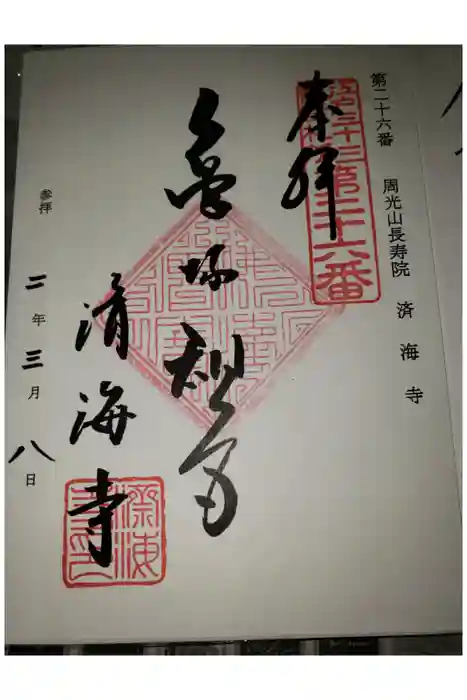 第二十六番 周光山長寿院 済海寺
奉拝
江戸三十三第二十六番
亀塚
済海寺
参拝 二年三月八日